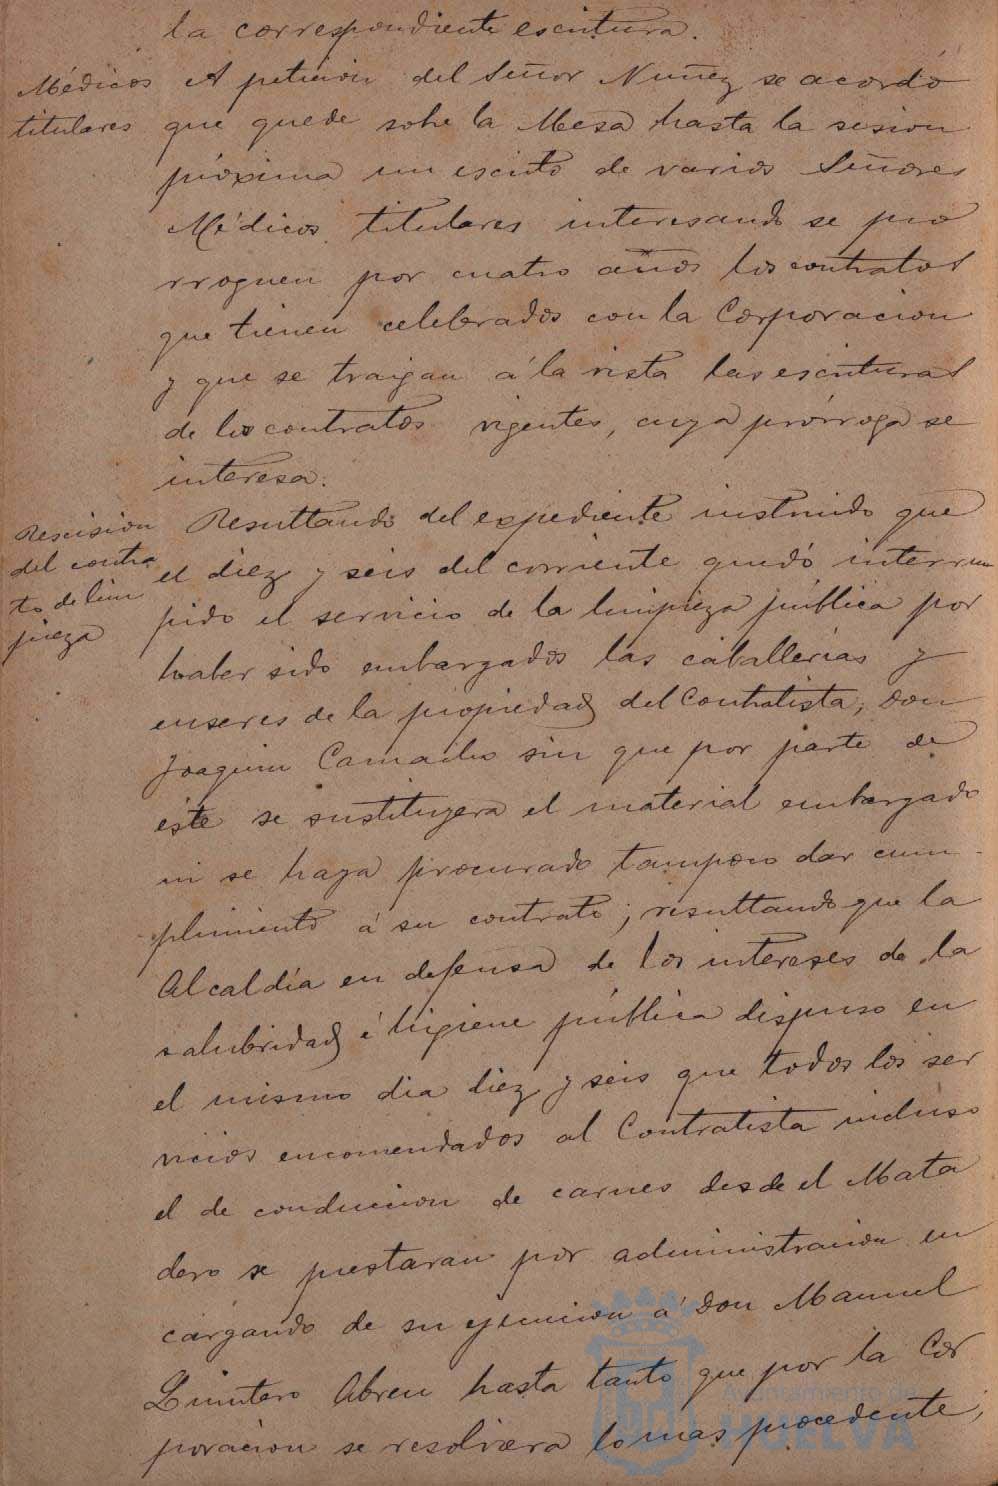 la correspondiente escritura.
Médicos
titulares
A petición del Señor Nuñez se acordó
que quede sobre la Mesa hasta la sesion
próxima un escrito de varios Señores
Médicos titulares interesando se pro
rroguen por cuatro años los contratos
que tienen celebrados con la Corporacion
y que se traigan á la vista las escrituras
de los contratos vigentes, cuya prórroga se
interesa.
Rescision
del contra
to de lim
pieza
Resultando del expediente instruido que
el diez y seis del corriente quedó interrum
pido el servicio de la limpieza pública por
haber sido embargados las caballerías y
enseres de la propiedad del Contratista, Don
Joaquin Camacho sin que por parte de
éste se sustituyera el material embargado
ni se haya procurado tampoco dar cum-
plimiento á su contrato; resultando que la
Alcaldía en defensa de los intereses de la
salubridad é higiene pública dispuso en
el mismo dia diez y seis que todos los ser
vicios encomendados al Contratista incluso
el de conduccion de carnes desde el Mata
dero se prestaran por administracion en
cargando de su ejecucion á Don Manuel
Quintero Abreu hasta tanto que por la Cor
poracion se resolviera lo mas procedente;
Ayuntamiento de
HUELVA